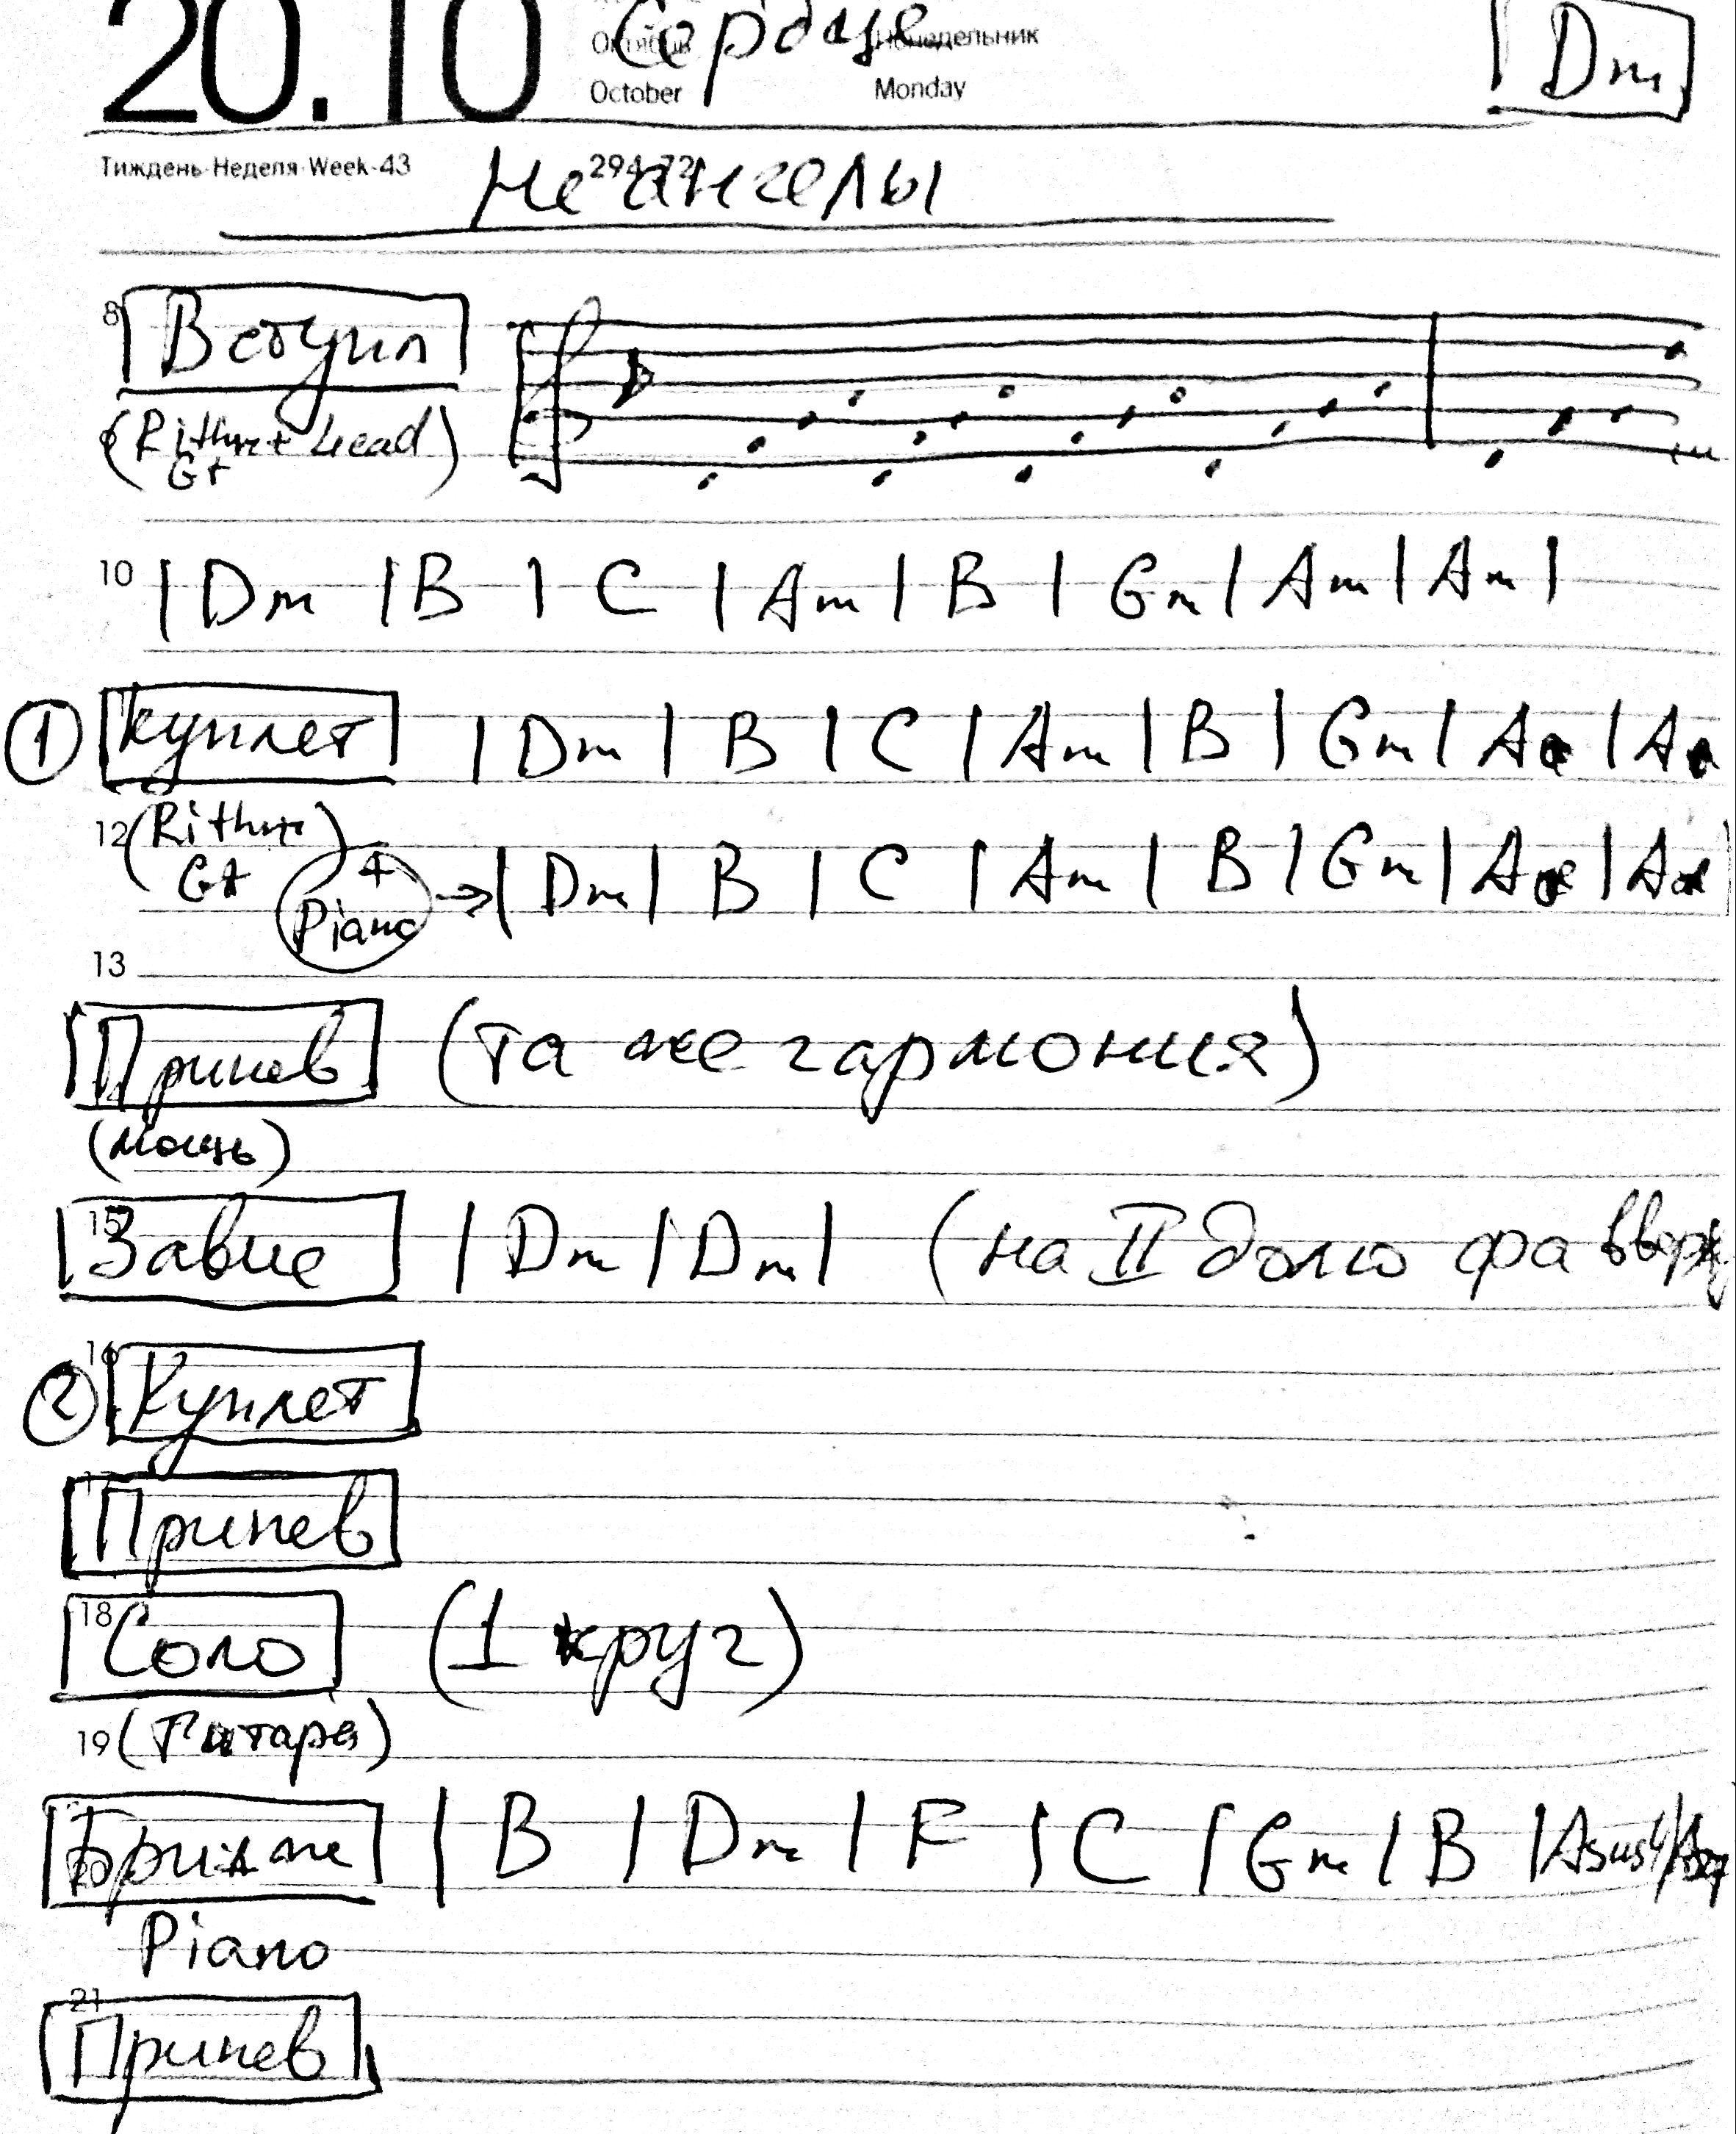 20.10 Октябрь Понедельник
October Monday
Сердце Dm
Тиждень·Неделя·Week·43 294-72
не ангелы
8 Вступл
(Rithm + Lead)
Gt
10 | Dm | B | C | Am | B | Gm | Am | Am |
1 Куплет | Dm | B | C | Am | B | Gm | A | A
12 (Rithm)
Gt + Piano → | Dm | B | C | Am | B | Gm | A | A |
13
Припев (та же гармония)
(мощь)
15 Завис | Dm | Dm | (на II долю фа вверх
16
2 Куплет
17
Припев
18 Соло (1 круг)
19 (Гитара)
Бридж | B | Dm | F | C | Gm | B | Asus4/
Piano
21
Припев